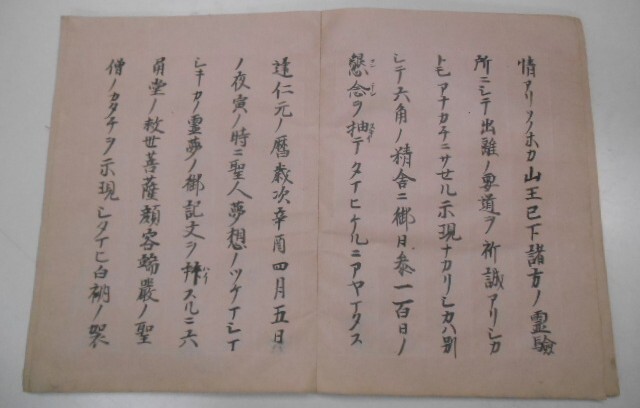 情アリソノホカ山王已下諸方ノ霊驗
所ニシテ出離ノ要道ヲ祈誠アリシカ
トモアナカチニサセル示現ナカリシカハ別
シテ六角ノ精舎ニ御日参一百日ノ
懇念ヲ抽テタマヒケルニアヤマタス
建仁元ノ暦歳次辛酉四月五日
ノ夜寅ノ時ニ聖人夢想ノツケマシマ
シキカノ霊夢ノ御記文ヲ拝スルニ六
角堂ノ救世菩薩顔容端嚴ノ聖
僧ノカタチヲ示現シタマヒ白衲ノ袈